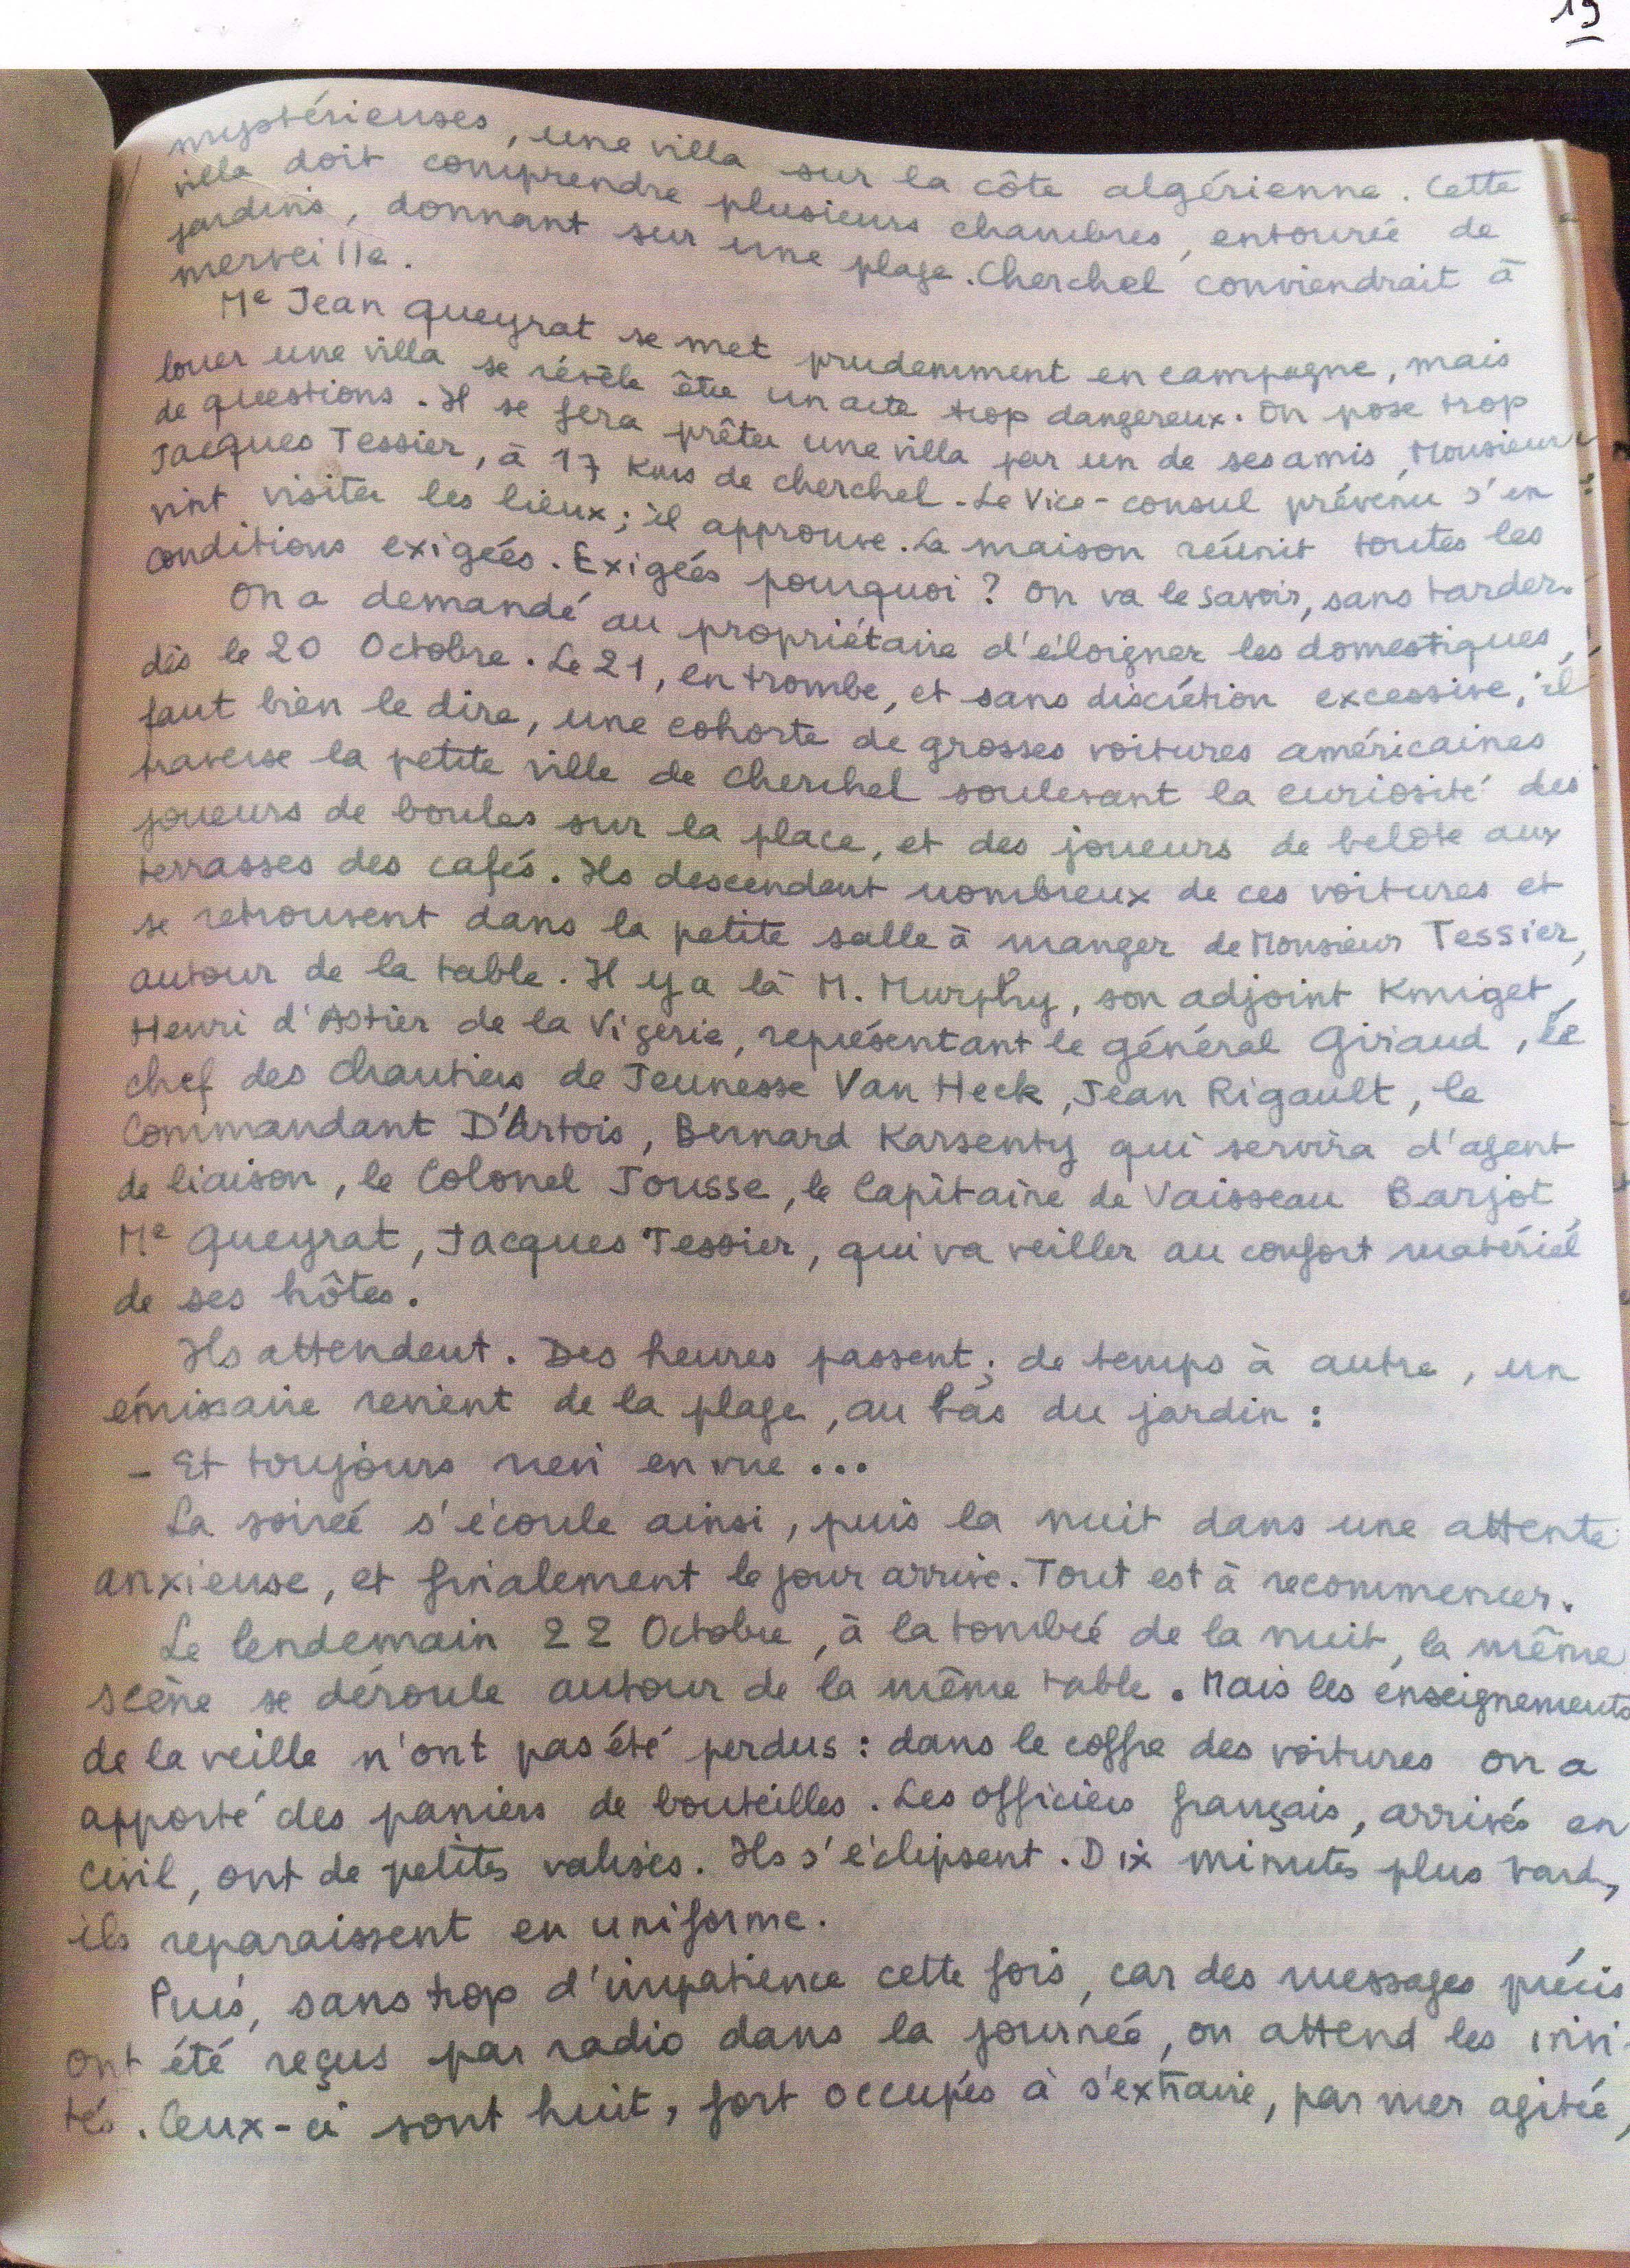 19
mystérieuses, une villa sur la côte algérienne. Cette
villa doit comprendre plusieurs chambres, entourée de
jardins, donnant sur une plage. Cherchel conviendrait à
merveille.
Me Jean Queyrat se met prudemment en campagne, mais
louer une villa se révèle être un acte trop dangereux. On pose trop
de questions. Il se fera prêter une villa par un de ses amis, Monsieur
Jacques Tessier, à 17 Kms de Cherchel. Le Vice-consul prévenu s'en
vint visiter les lieux; il approuve. La maison réunit toutes les
conditions exigées. Exigées pourquoi ? On va le savoir, sans tarder.
On a demandé au propriétaire d'éloigner les domestiques,
dès le 20 Octobre. Le 21, en trombe, et sans discrétion excessive, il
faut bien le dire, une cohorte de grosses voitures américaines
traverse la petite ville de Cherchel soulevant la curiosité des
joueurs de boules sur la place, et des joueurs de belote aux
terrasses des cafés. Ils descendent nombreux de ces voitures et
se retrouvent dans la petite salle à manger de Monsieur Tessier,
autour de la table. Il y a là M. Murphy, son adjoint Kniget,
Henri d'Astier de la Vigerie, représentant le général Giraud, le
chef des Chantiers de Jeunesse Van Heck, Jean Rigault, le
Commandant D'Artois, Bernard Karsenty qui servira d'agent
de liaison, le Colonel Jousse, le Capitaine de Vaisseau Barjot,
Me Queyrat, Jacques Tessier, qui va veiller au confort matériel
de ses hôtes.
Ils attendent. Des heures passent; de temps à autre, un
émissaire revient de la plage, au bas du jardin :
- Et toujours rien en vue ...
La soirée s'écoule ainsi, puis la nuit dans une attente
anxieuse, et finalement le jour arrive. Tout est à recommencer.
Le lendemain 22 Octobre, à la tombée de la nuit, la même
scène se déroule autour de la même table. Mais les enseignements
de la veille n'ont pas été perdus : dans le coffre des voitures on a
apporté des paniers de bouteilles. Les officiers français, arrivés en
civil, ont de petites valises. Ils s'éclipsent. Dix minutes plus tard,
ils reparaissent en uniforme.
Puis, sans trop d'impatience cette fois, car des messages précis
ont été reçus par radio dans la journée, on attend les invi-
tés. Ceux-ci sont huit, fort occupés à s'extraire, par mer agitée,